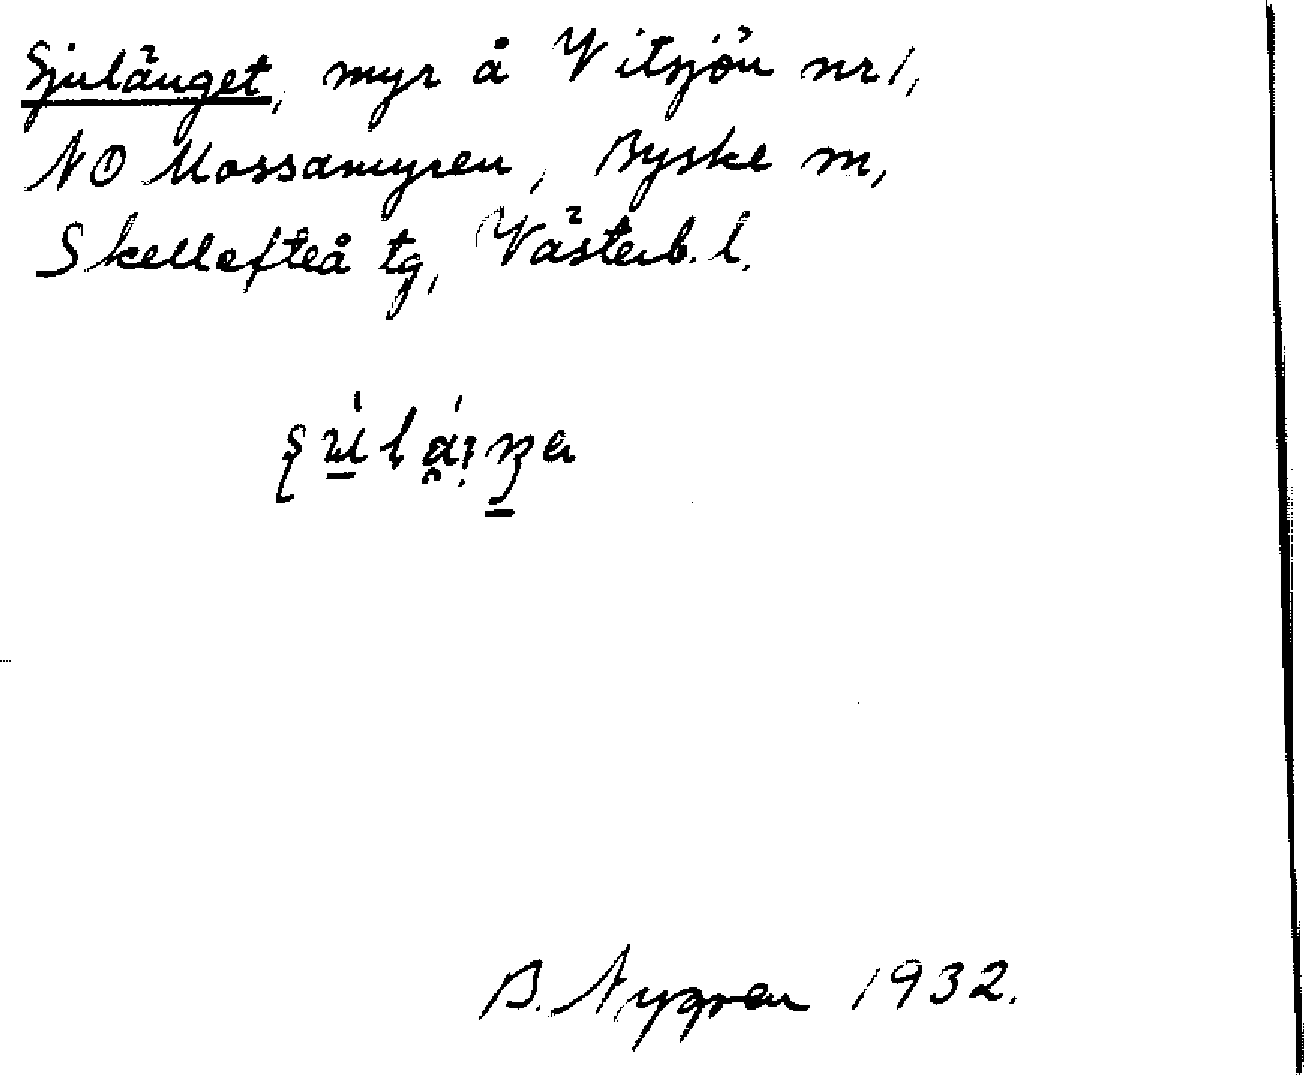 Sjulänget, myr å Vitsjön nr 1,
NO Mossamyren, Byske sn,
Skellefteå tg, Västerb. l.
B. Nygren 1932.